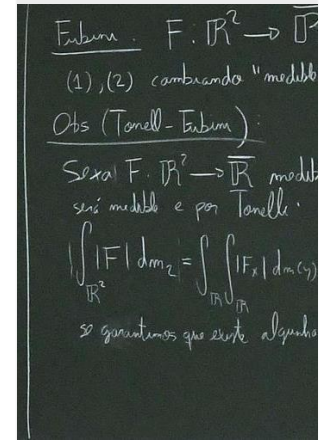 Fubini. F: ℝ² →
(1), (2) cambiando "medible
Obs (Tonell-Fubini):
Sexa F: ℝ² → ℝ̅ medib
será medible e por Tonelli:
∫_{ℝ²} |F| dm₂ = ∫_ℝ ∫_ℝ |Fₓ| dm(y)
se garantimos que existe algunha